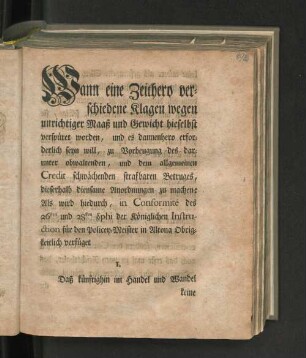 Wann eine Zeithero ver-
schiedene Klagen wegen
unrichtiger Maaß und Gewicht hieselbst
verspüret worden, und es dannenhero erfor-
derlich seyn will, zu Vorbeugung des dar-
unter obwaltenden, und dem allgemeinen
Credit schwächenden strafbaren Betruges,
dieserhalb diensame Anordnungen zu machen:
Als wird hiedurch, in Conformité des
26sten und 28sten §phi der Königlichen Instru-
ction für den Policey-Meister in Altona Obrig-
keitlich verfüget
1.
Daß künftighin im Handel und Wandel
keine